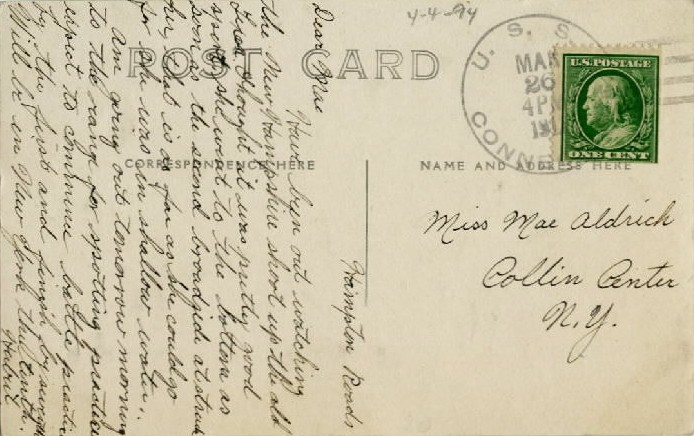 4-4-94
POST CARD
U. S. S.
CONNE
MAR
26
4 PM
191
U.S. POSTAGE
ONE CENT
CORRESPONDENCE HERE
NAME AND ADDRESS HERE
Miss Mae Aldrich
Collin Center
N.Y.
Hampton Roads
Dear Mae
Have been out watching
the New Hampshire shoot up the old
thought it was pretty good
sport she went to the bottom as
soon as the second broadside struck
her, that is as far as she could go
for she was in shallow water.
Am going out tomorrow morning
to the range for spotting practice
expect to commence battle practice
by the first and finish by
Will be in New York the tenth.